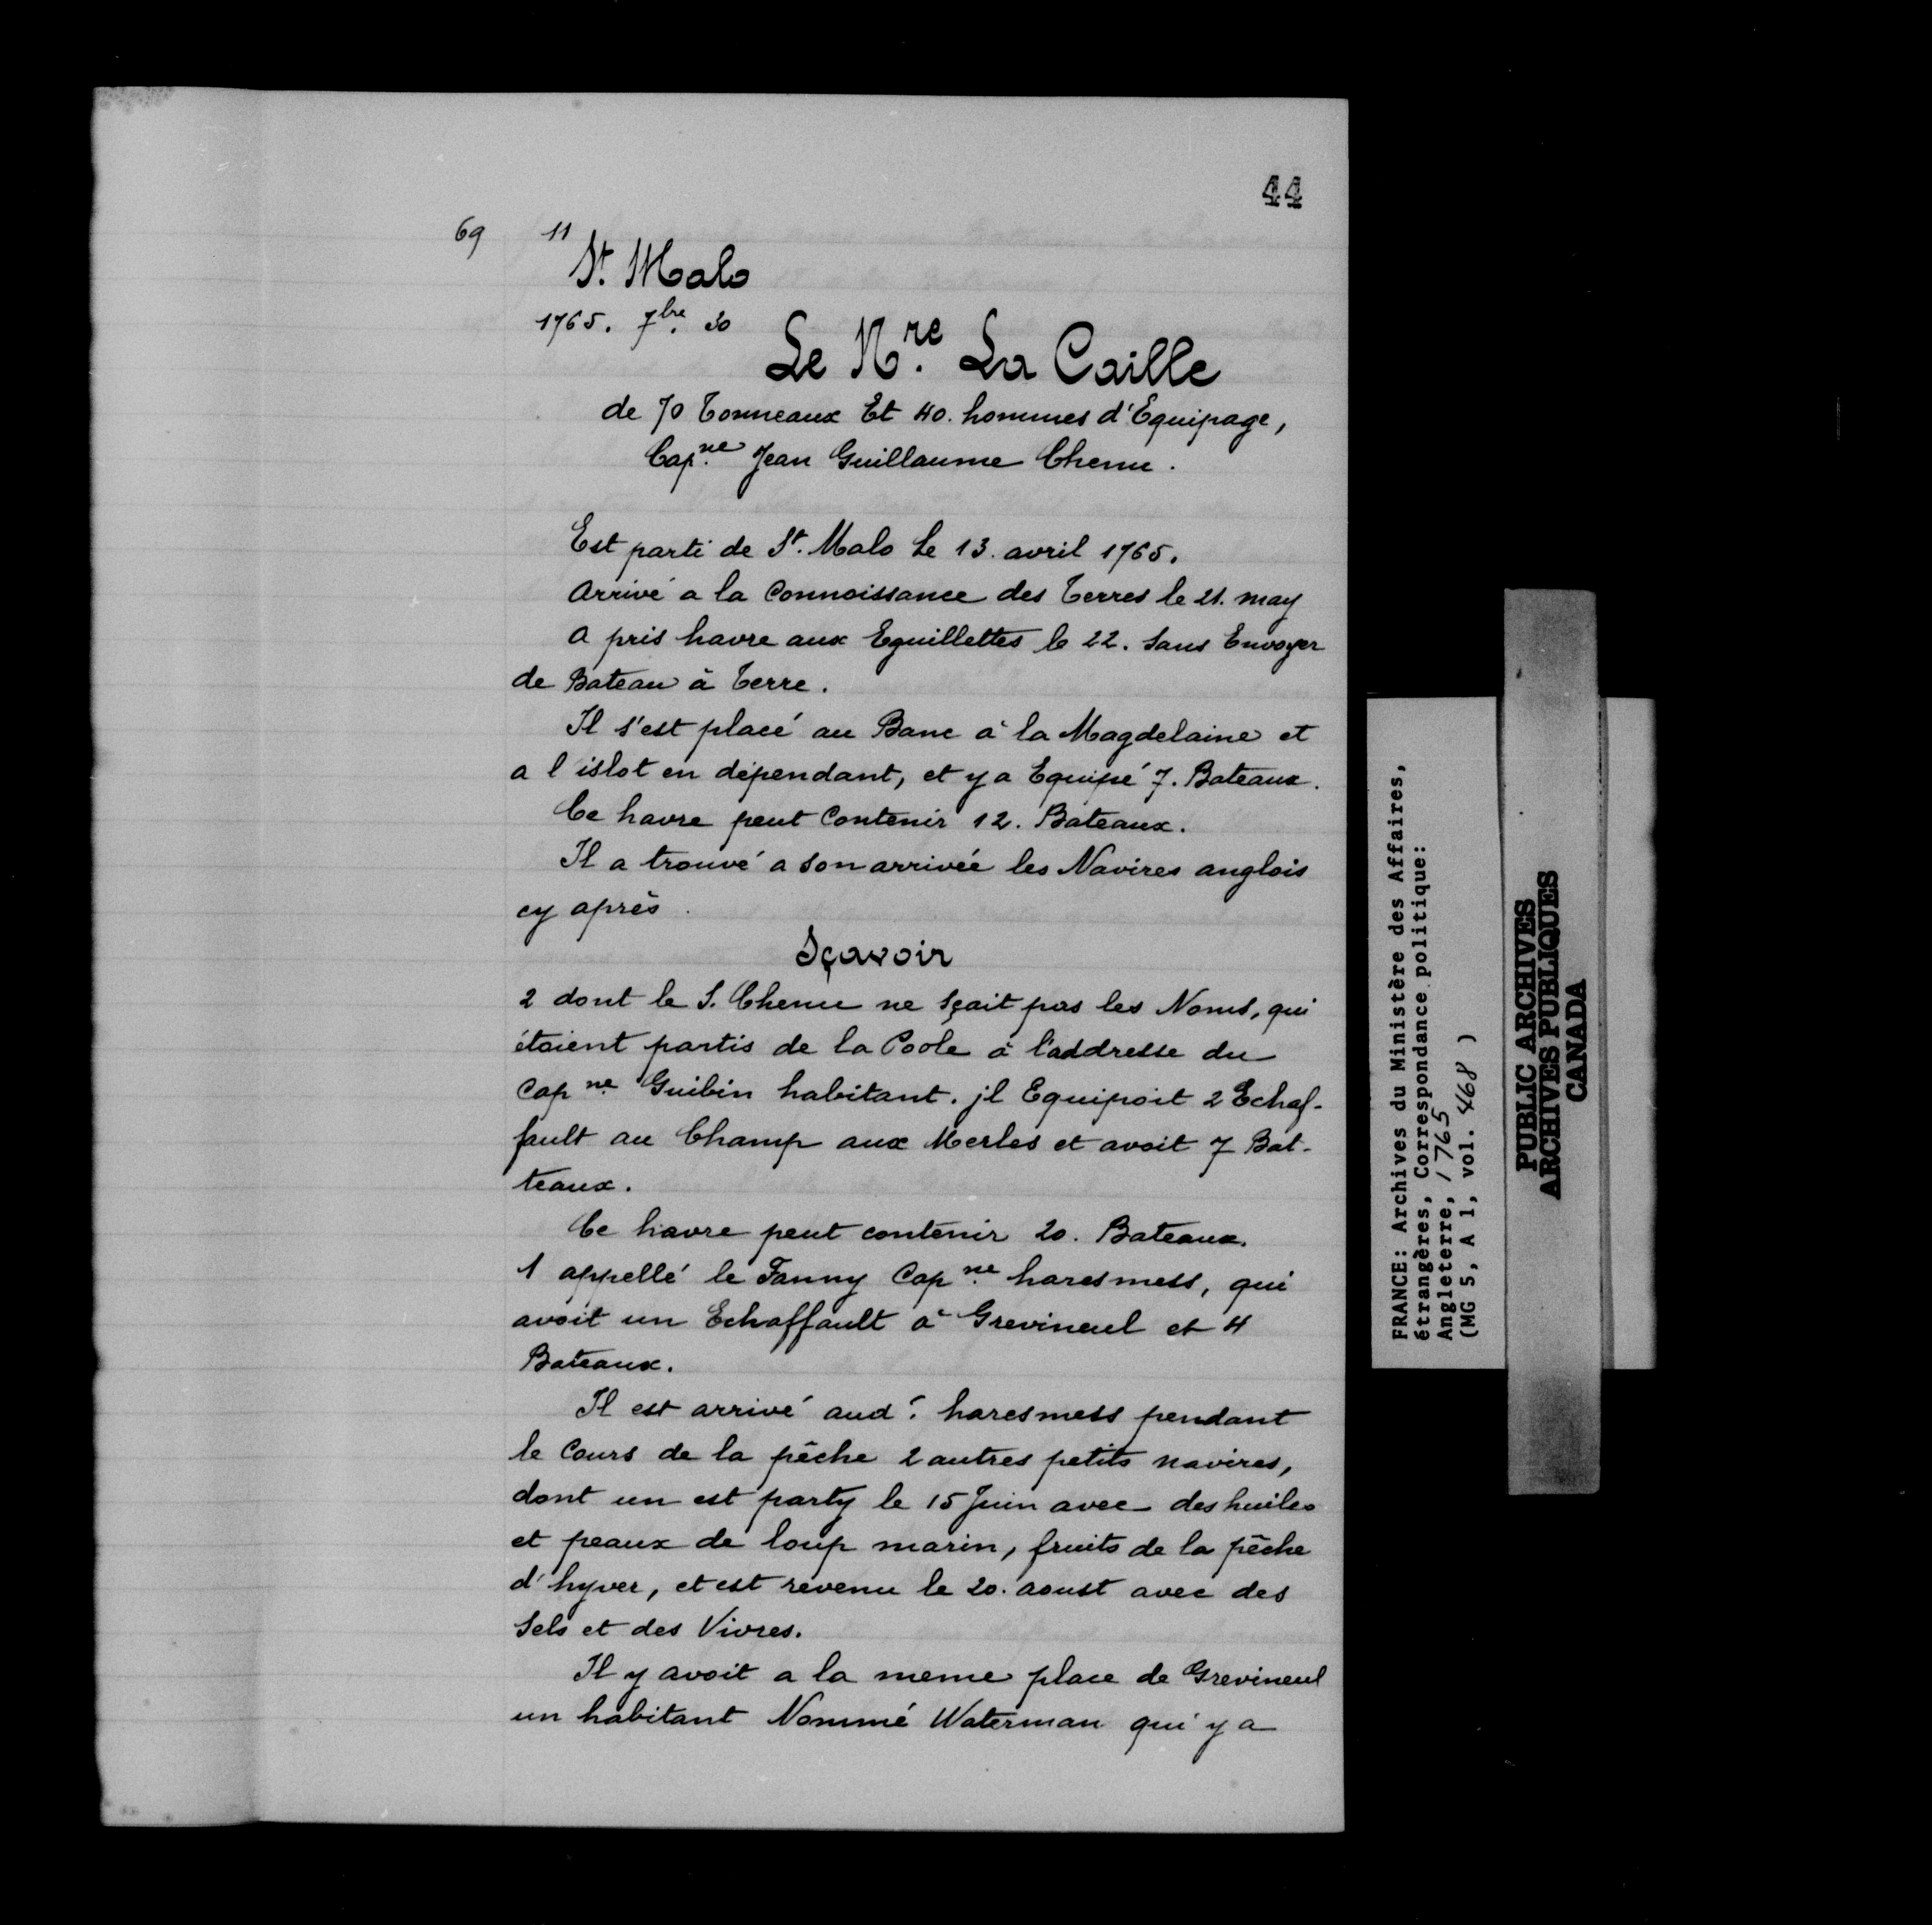 44
69 11
St. Malo
1765. 7bre. 30
Le N.re La Caille
de 70 Tonneaux Et 40. hommes d'Equipage,
Cap.ne Jean Guillaume Chenu.
Est parti de St. Malo Le 13. avril 1765.
Arrivé a la Connoissance des Terres le 21. may
A pris havre aux Eguillettes le 22. Sans Envoyer
de Bateau à Terre.
Il s'est placé au Banc à la Magdelaine et
a l islot en dépendant, et y a Equipé 7. Bateaux.
Ce havre peut Contenir 12. Bateaux.
Il a trouvé a son arrivée les Navires anglois
cy après.
Sçavoir
2 dont le S. Chenu ne sçait pas les Noms, qui
étoient partis de la Poole à l'addresse du
Cap.ne Guibin habitant. jl Equipoit 2 Echaf-
fault au Champ aux Merles et avoit 7 Bat-
teaux.
Ce havre peut contenir 20. Bateaux.
1 appellé le Fanny Cap.ne haresmess, qui
avoit un Echaffault à Grevineul et 4
Bateaux.
Il est arrivé aud. haresmess pendant
le Cours de la pêche 2 autres petits navires,
dont un est party le 15 Juin avec des huiles
et peaux de loup marin, fruits de la pêche
d'hyver, et est revenu le 20. aoust avec des
Sels et des Vivres.
Il y avoit a la meme place de Grevineul
un habitant Nommé Waterman qui y a
FRANCE: Archives du Ministère des Affaires,
étrangères, Correspondance politique:
Angleterre, 1765
(MG 5, A 1, vol. 468 )
PUBLIC ARCHIVES
ARCHIVES PUBLIQUES
CANADA